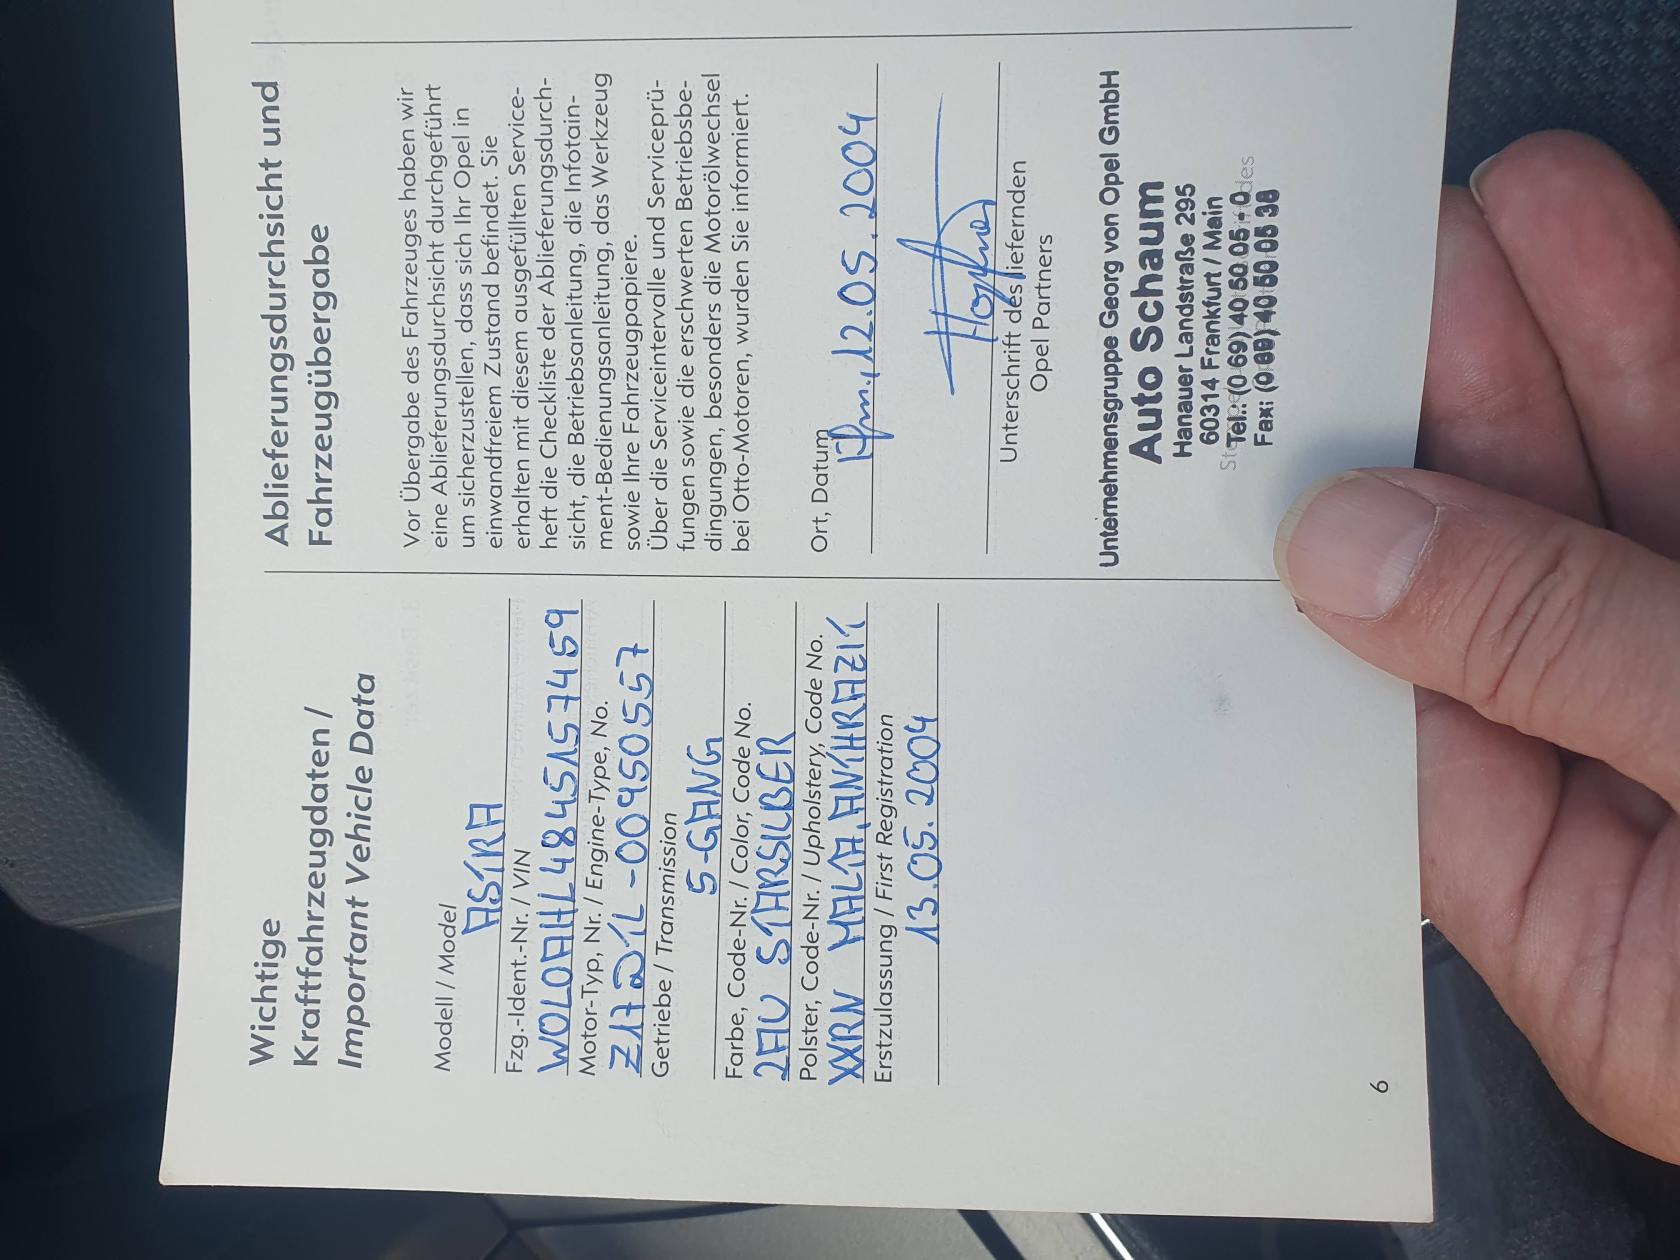 Wichtige
Kraftfahrzeugdaten /
Important Vehicle Data
Modell / Model
ASTRA
Fzg.-Ident.-Nr. / VIN
W0L0AHL4845157459
Motor-Typ, Nr. / Engine-Type, No.
Z17DTL-00950557
Getriebe / Transmission
5-GANG
Farbe, Code-Nr. / Color, Code No.
2AU STARSILBER
Polster, Code-Nr. / Upholstery, Code No.
XXRN MALTA, ANTHRAZIT
Erstzulassung / First Registration
13.05.2004
6
Ablieferungsdurchsicht und
Fahrzeugübergabe
Vor Übergabe des Fahrzeuges haben wir
eine Ablieferungsdurchsicht durchgeführt
um sicherzustellen, dass sich Ihr Opel in
einwandfreiem Zustand befindet. Sie
erhalten mit diesem ausgefüllten Service-
heft die Checkliste der Ablieferungsdurch-
sicht, die Betriebsanleitung, die Infotain-
ment-Bedienungsanleitung, das Werkzeug
sowie Ihre Fahrzeugpapiere.
Über die Serviceintervalle und Serviceprü-
fungen sowie die erschwerten Betriebsbe-
dingungen, besonders die Motorölwechsel
bei Otto-Motoren, wurden Sie informiert.
Ort, Datum
Ffm., 12.05.2004
Unterschrift des liefernden
Opel Partners
Unternehmensgruppe Georg von Opel GmbH
Auto Schaum
Hanauer Landstraße 295
60314 Frankfurt / Main
Tel.: (0 69) 40 50 05 - 0
Fax: (0 69) 40 50 05 38